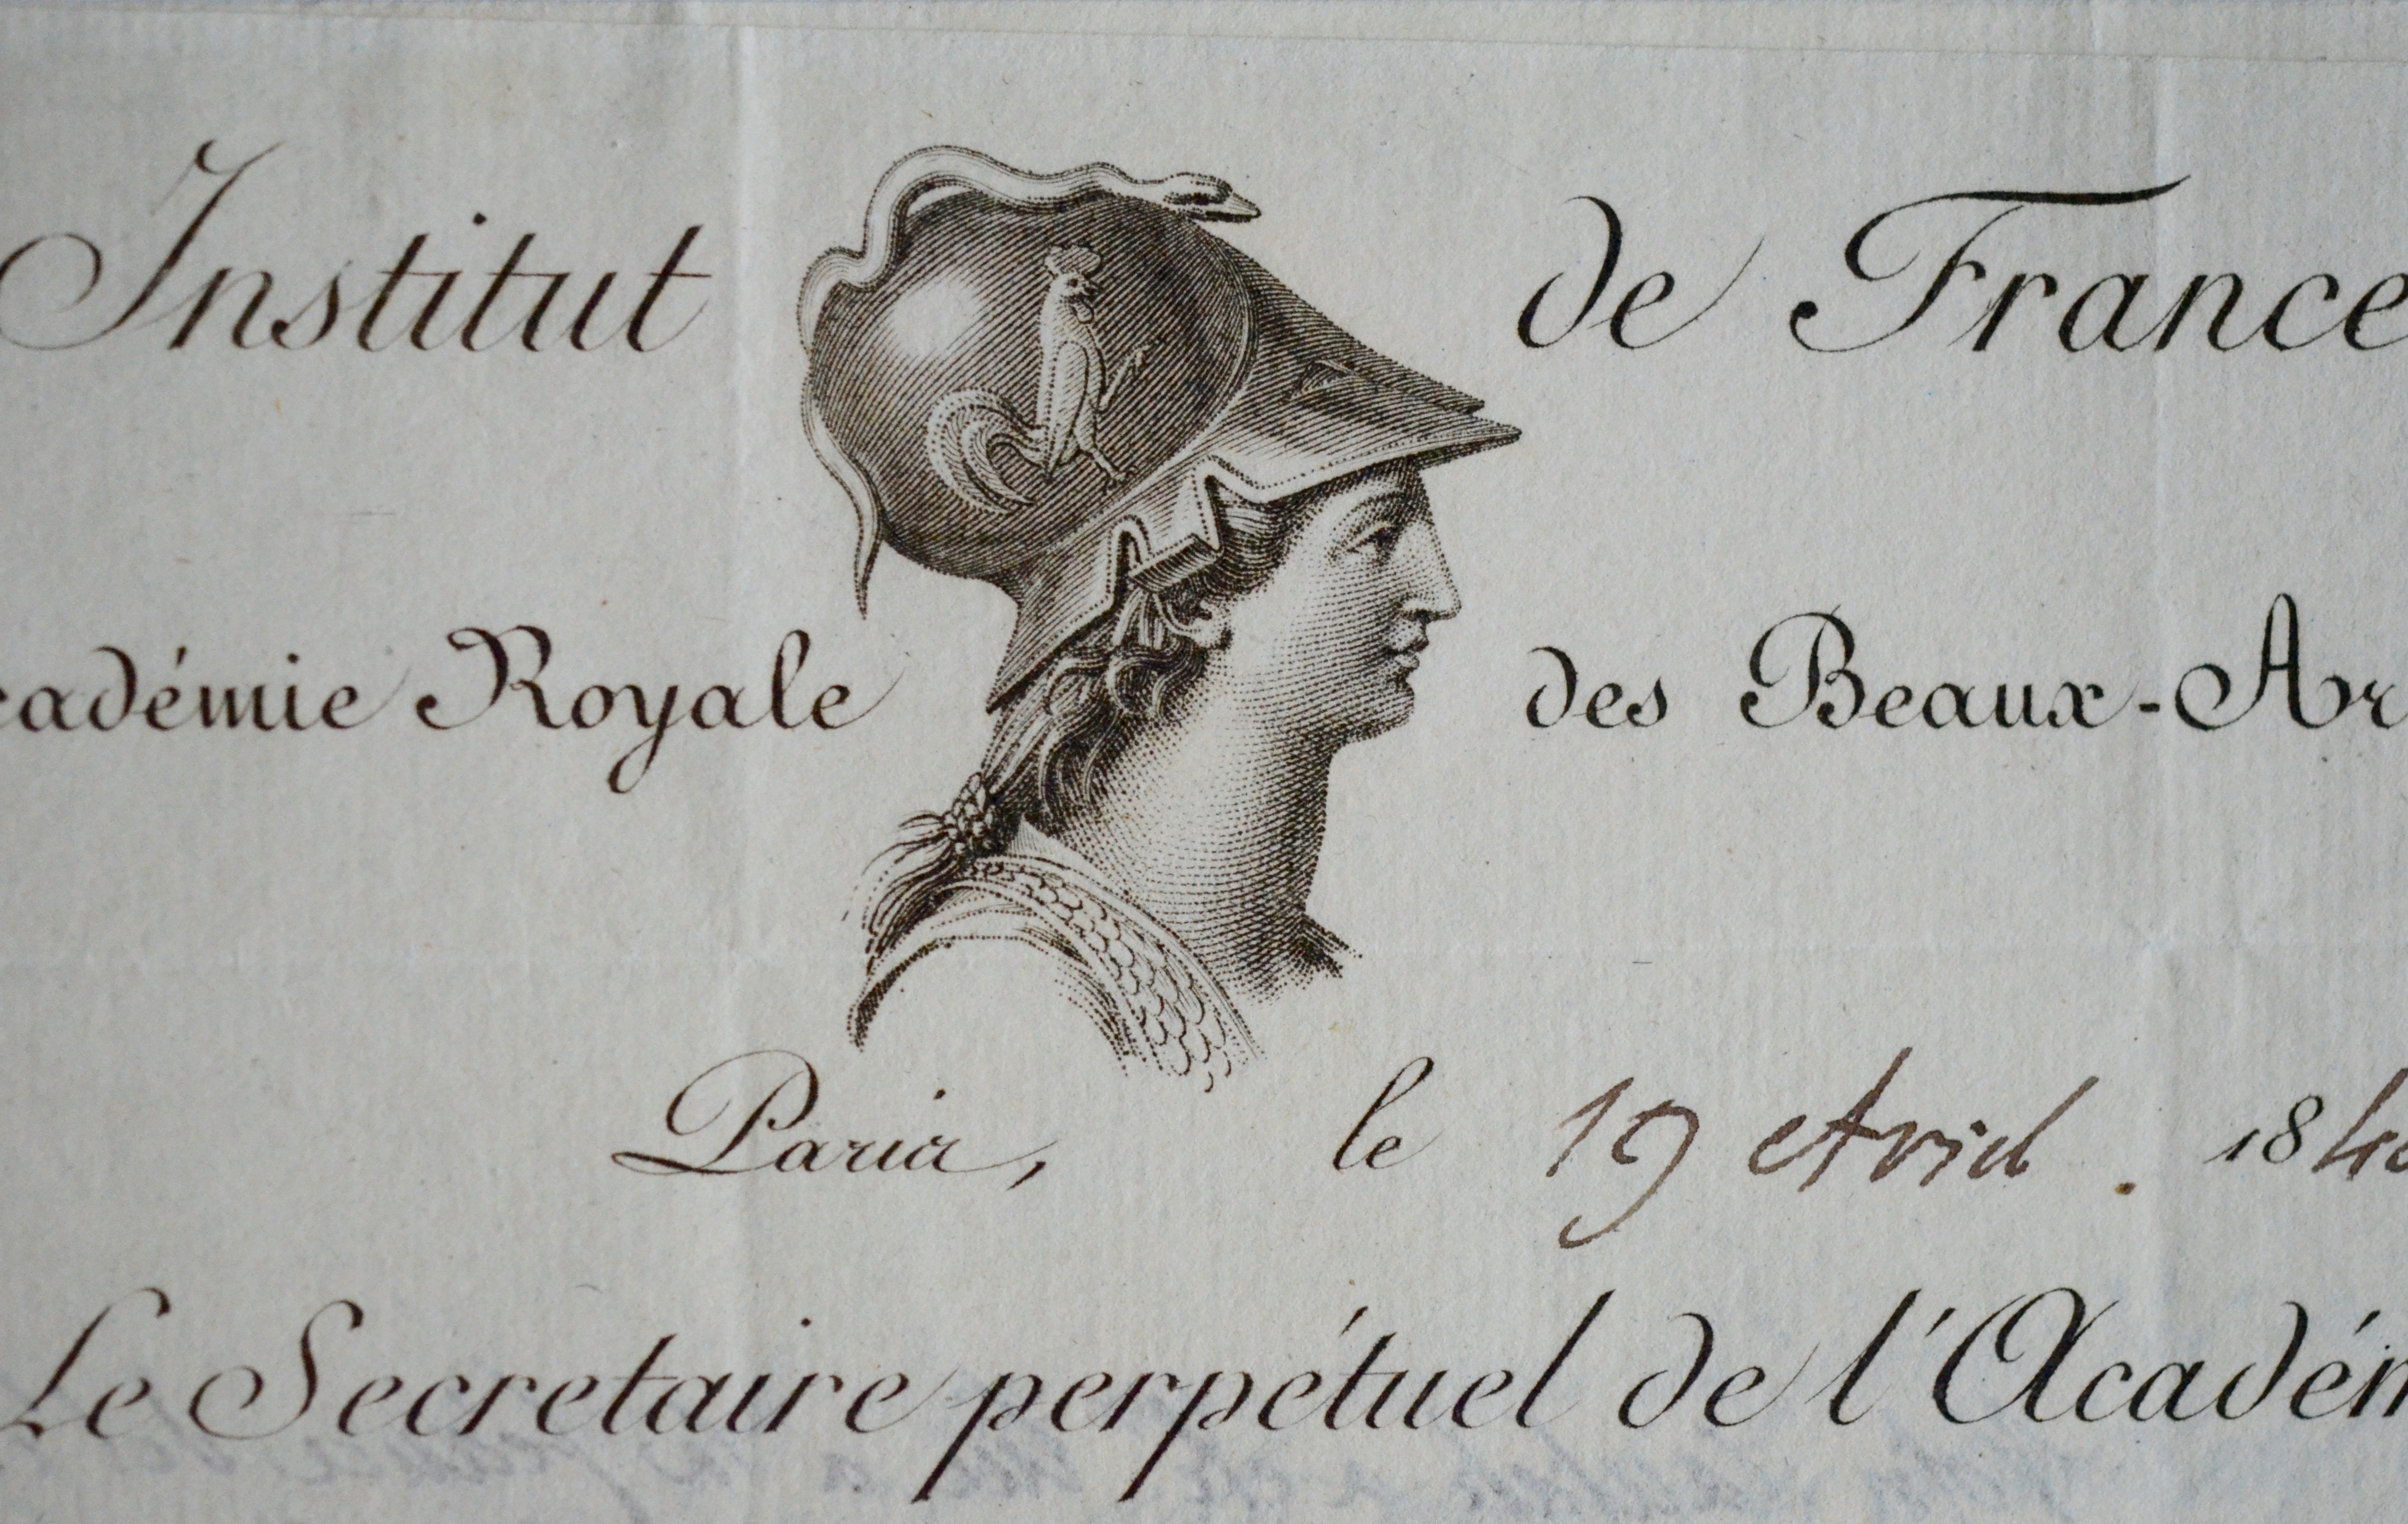 Institut de France
cadémie Royale des Beaux-Ar
Paris, le 19 Avril . 184
Le Secretaire perpétuel de l'Académ